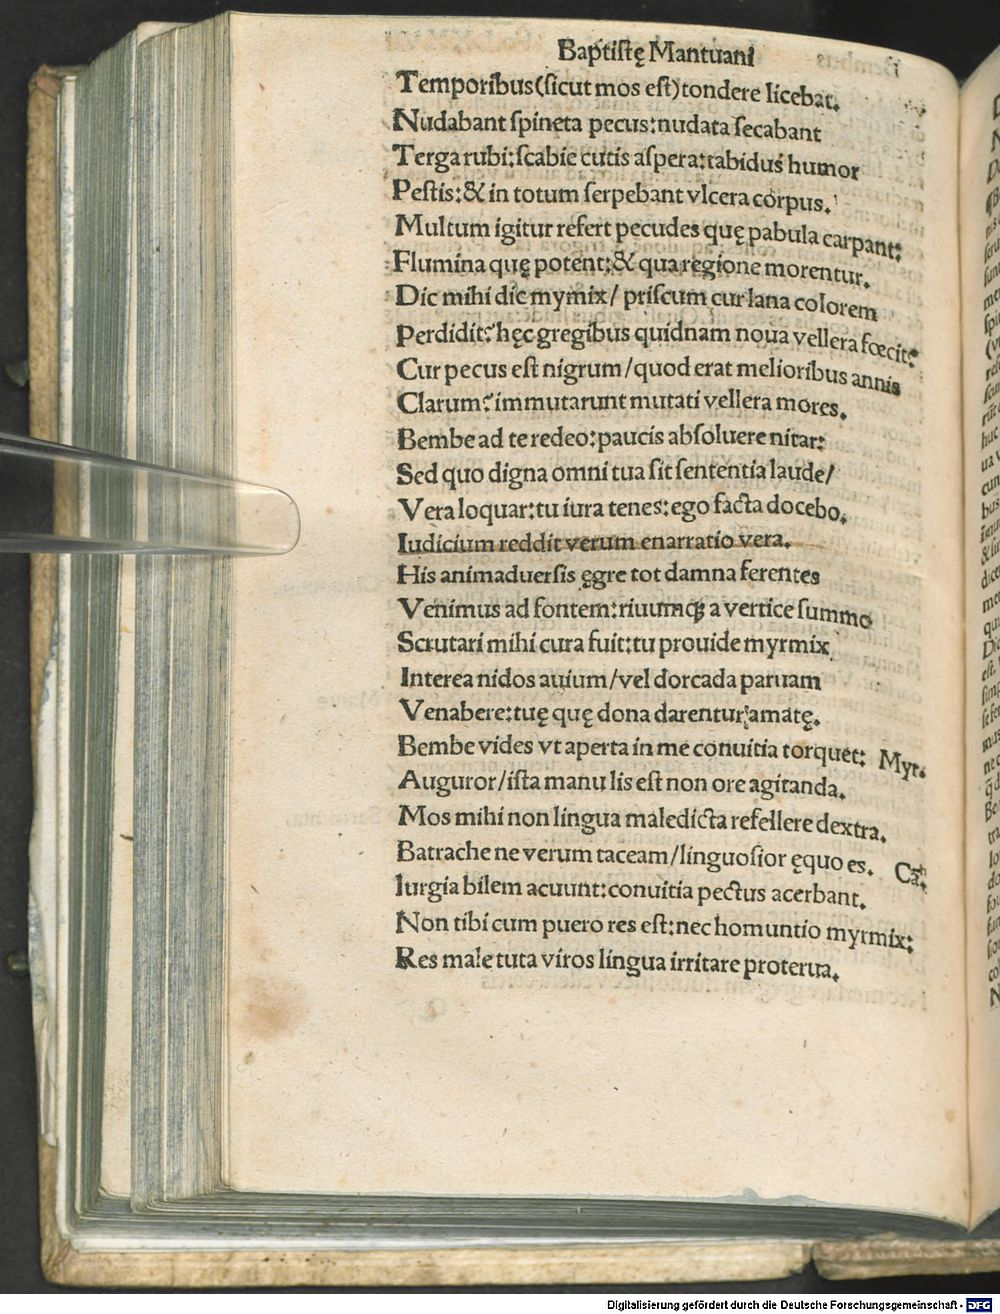 Baptistę Mantuani
Temporibus(ſicut mos eſt)tondere licebat.
Nudabant ſpineta pecus:nudata ſecabant
Terga rubi:ſcabie cutis aſpera:tabidus humor
Peſtis:& in totum ſerpebant vlcera corpus.
Multum igitur refert pecudes quę pabula carpant:
Flumina quę potent:& qua regione morentur.
Dic mihi dic mymix/ priſcum cur lana colorem
Perdidit?hęc gregibus quidnam noua vellera fœcit?
Cur pecus eſt nigrum/quod erat melioribus annis
Clarum?immutarunt mutati vellera mores.
Bembe ad te redeo:paucis abſoluere nitar:
Sed quo digna omni tua ſit ſententia laude/
Vera loquar:tu iura tenes:ego facta docebo.
Iudicium reddit verum enarratio vera.
His animaduerſis ęgre tot damna ferentes
Venimus ad fontem:riuumqꝫ a vertice ſummo
Scrutari mihi cura fuit:tu prouide myrmix
Interea nidos auium/vel dorcada paruam
Venabere:tuę quę dona darentur amatę.
Bembe vides vt aperta in me conuitia torquet: Myr.
Auguror/iſta manu lis eſt non ore agitanda.
Mos mihi non lingua maledicta refellere dextra.
Batrache ne verum taceam/linguoſior ęquo es. Ca.
Iurgia bilem acuunt:conuitia pectus acerbant.
Non tibi cum puero res eſt:nec homuntio myrmix:
Res male tuta viros lingua irritare proterua.
Digitalisierung gefördert durch die Deutsche Forschungsgemeinschaft - DFG